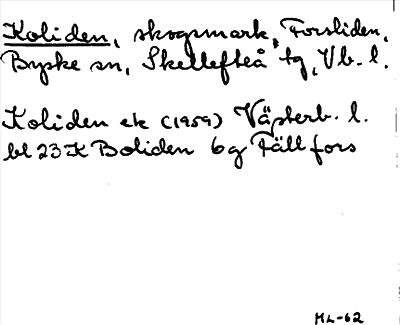 Koliden, skogsmark, Forsliden,
Byske sn, Skellefteå tg, Vb. l.
Koliden ek (1959) Västerb. l.
bl 23 K Boliden 6g Fällfors
ML-62